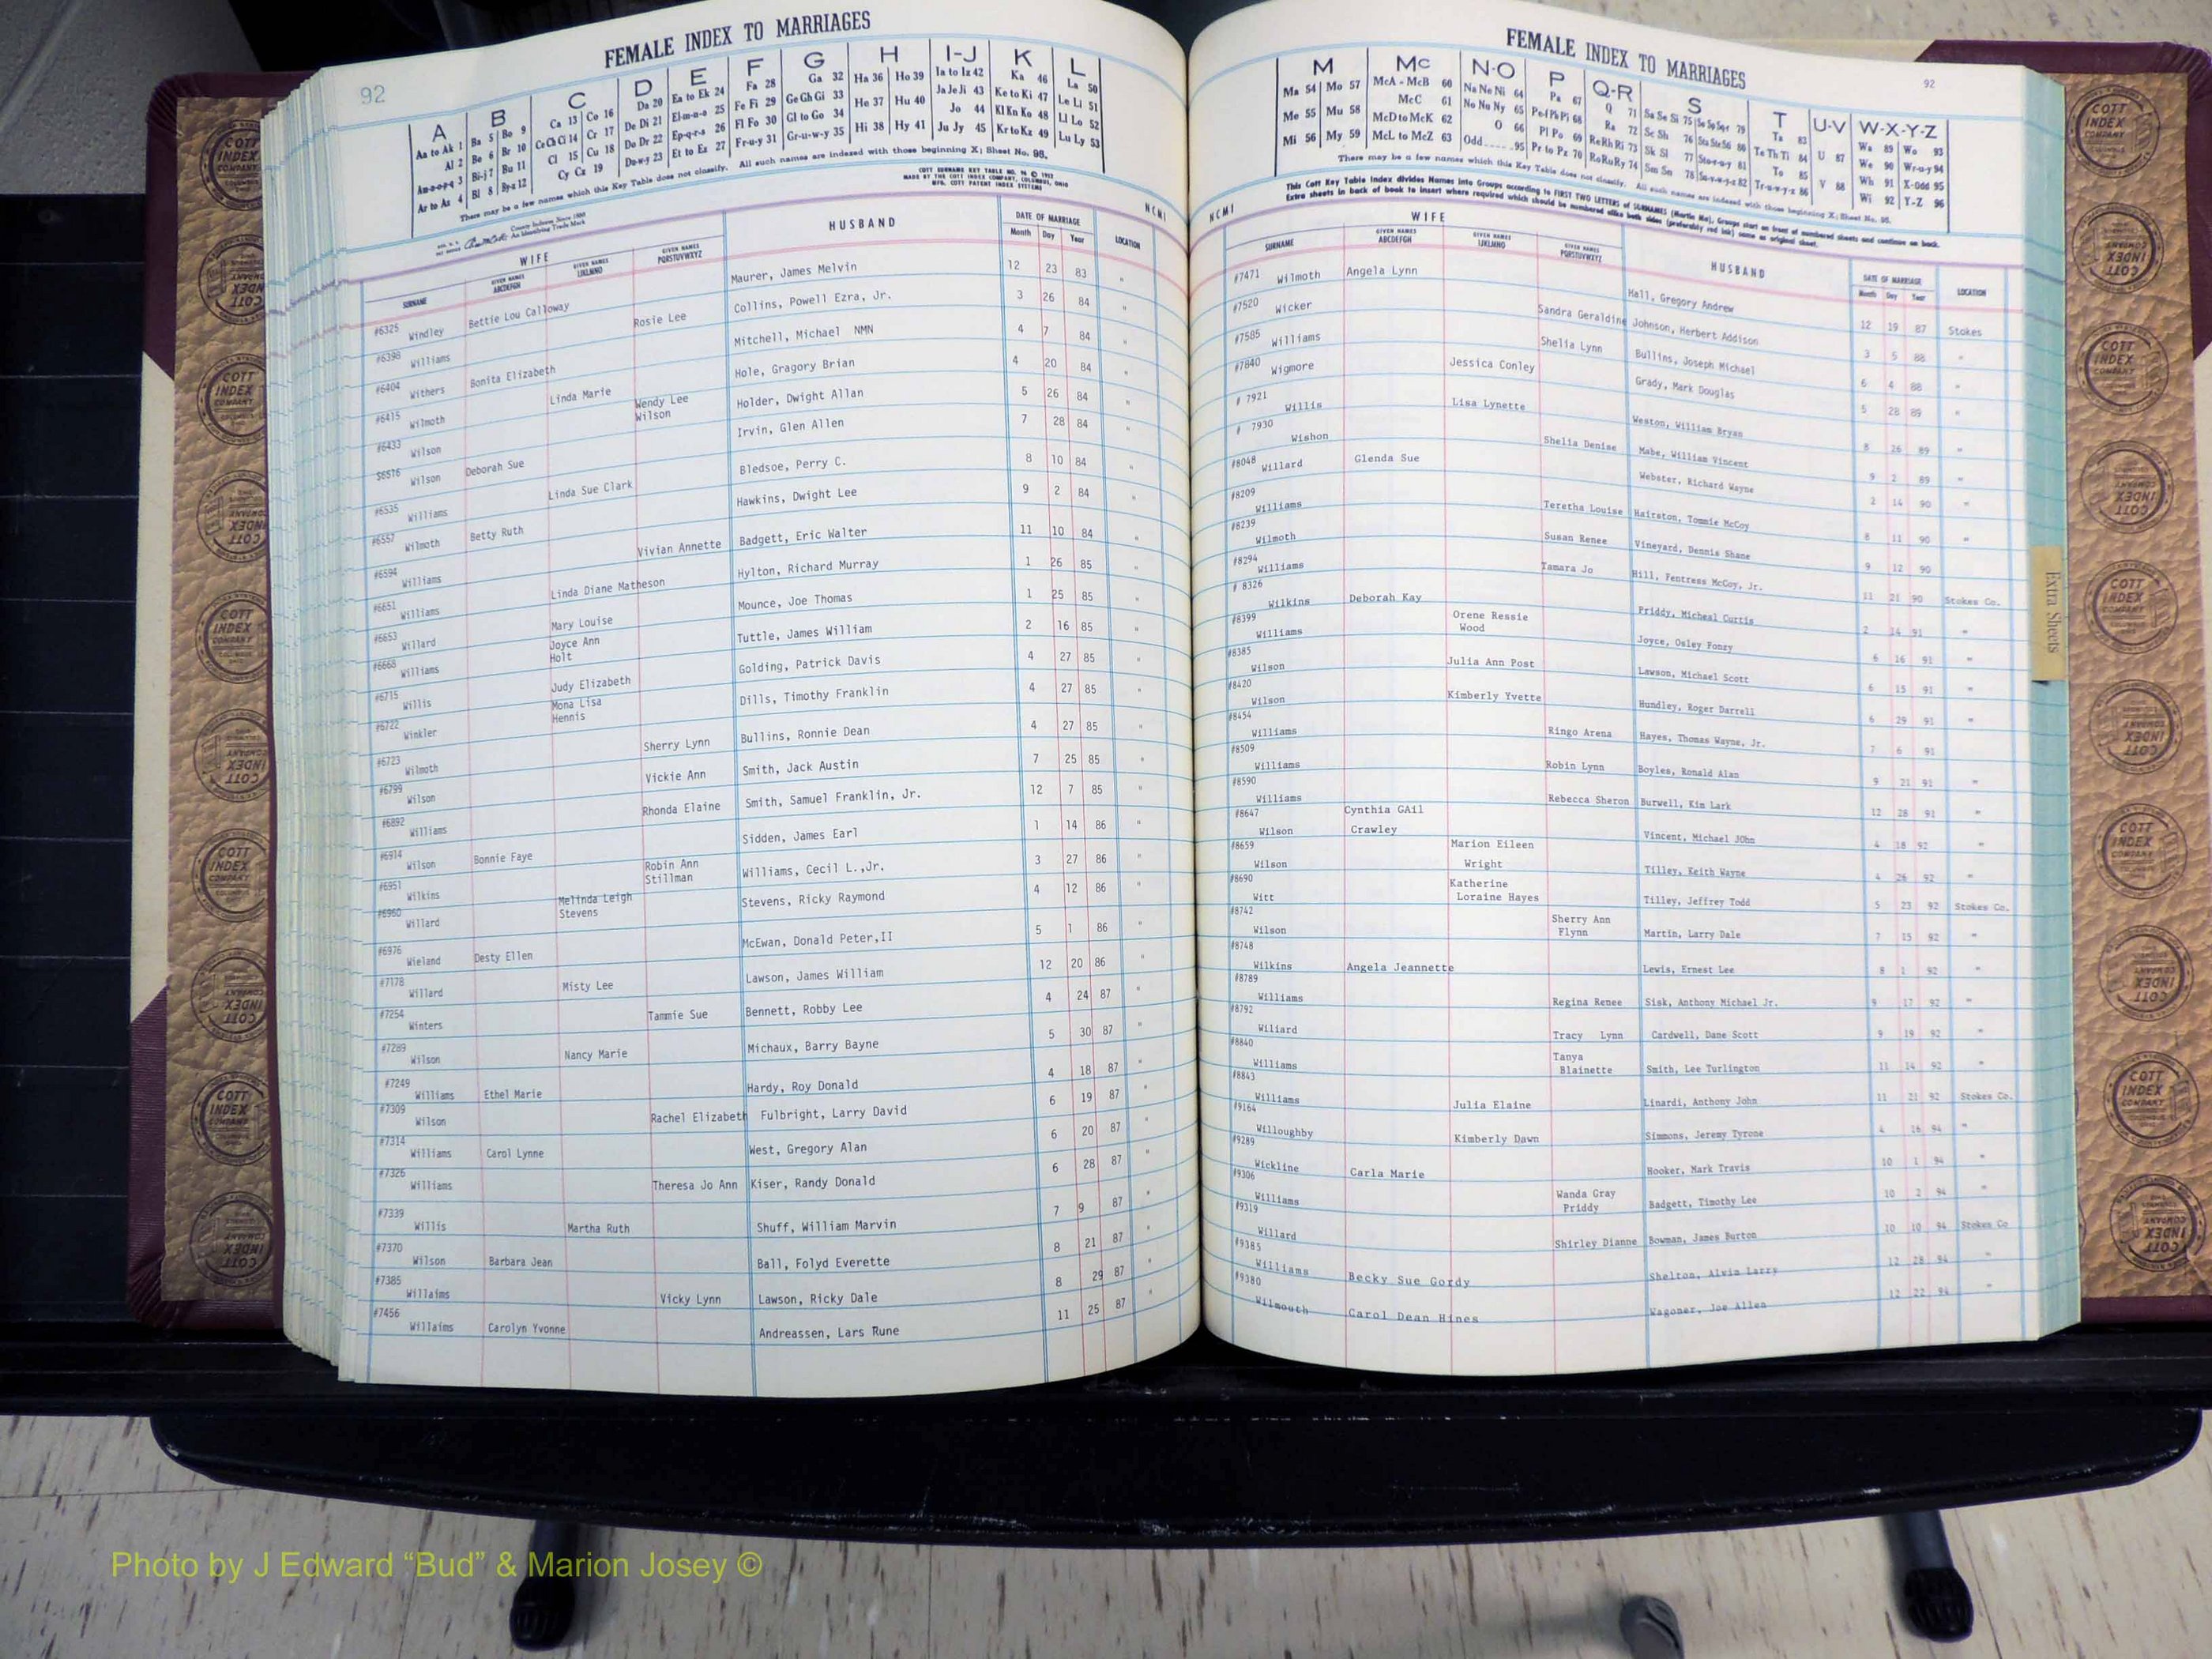 92
FEMALE INDEX TO MARRIAGES
A B C D E F G H I-J K L
Aa to Ak 1 Ba 5 Bo 9 Ca 13 Co 16 Da 20 Ea to Ek 24 Fa 28 Ga 32 Ha 36 Ho 39 Ia to Iz 42 Ka 46 La 50
Al 2 Be 6 Br 10 Ce Ch Ci 14 Cr 17 De Di 21 El-m-n-o 25 Fe Fi 29 Ge Gh Gi 33 He 37 Hu 40 Ja Je Ji 43 Ke to Ki 47 Le Li 51
An-o-p-q 3 Bi-j 7 Bu 11 Cl 15 Cu 18 Do Dr 22 Ep-q-r-s 26 Fl Fo 30 Gl to Go 34 Hi 38 Hy 41 Jo 44 Kl Kn Ko 48 Ll Lo 52
Ar to Az 4 Bl 8 By-z 12 Cy Cz 19 Du-w-y 23 Et to Ez 27 Fr-u-y 31 Gr-u-w-y 35 Ju Jy 45 Kr to Kz 49 Lu Ly 53
There may be a few names which this Key Table does not classify. All such names are indexed with those beginning X; Sheet No. 95.
COTT SURNAME KEY TABLE NO. 96 © 1912
MADE BY THE COTT INDEX COMPANY, COLUMBUS, OHIO
MFG. COTT PATENT INDEX SYSTEMS
County Indexes Since 1888
An Identifying Trade Mark
NCMI
WIFE HUSBAND DATE OF MARRIAGE LOCATION
SURNAME GIVEN NAMES ABCDEFGH GIVEN NAMES IJKLMNO GIVEN NAMES PQRSTUVWXYZ Month Day Year
#6325 Windley Bettie Lou Calloway Maurer, James Melvin 12 23 83 "
#6398 Williams Rosie Lee Collins, Powell Ezra, Jr. 3 26 84 "
#6404 Withers Bonita Elizabeth Mitchell, Michael NMN 4 7 84 "
#6415 Wilmoth Linda Marie Hole, Gragory Brian 4 20 84 "
#6433 Wilson Wendy Lee Wilson Holder, Dwight Allan 5 26 84 "
#6516 Wilson Deborah Sue Irvin, Glen Allen 7 28 84 "
#6535 Williams Linda Sue Clark Bledsoe, Perry C. 8 10 84 "
#6557 Wilmoth Betty Ruth Hawkins, Dwight Lee 9 2 84 "
#6594 Williams Vivian Annette Badgett, Eric Walter 11 10 84 "
#6651 Williams Linda Diane Matheson Hylton, Richard Murray 1 26 85 "
#6653 Willard Mary Louise Mounce, Joe Thomas 1 25 85 "
#6668 Williams Joyce Ann Holt Tuttle, James William 2 16 85 "
#6715 Willis Judy Elizabeth Golding, Patrick Davis 4 27 85 "
#6722 Winkler Mona Lisa Hennis Dills, Timothy Franklin 4 27 85 "
#6723 Wilmoth Sherry Lynn Bullins, Ronnie Dean 4 27 85 "
#6799 Wilson Vickie Ann Smith, Jack Austin 7 25 85 "
#6892 Williams Rhonda Elaine Smith, Samuel Franklin, Jr. 12 7 85 "
#6914 Wilson Bonnie Faye Sidden, James Earl 1 14 86 "
#6951 Wilkins Robin Ann Stillman Williams, Cecil L.,Jr. 3 27 86 "
#6960 Willard Melinda Leigh Stevens Stevens, Ricky Raymond 4 12 86 "
#6976 Wieland Desty Ellen McEwan, Donald Peter,II 5 1 86 "
#7178 Willard Misty Lee Lawson, James William 12 20 86 "
#7254 Winters Tammie Sue Bennett, Robby Lee 4 24 87 "
#7289 Wilson Nancy Marie Michaux, Barry Bayne 5 30 87
#7249 Williams Ethel Marie Hardy, Roy Donald 4 18 87 "
#7309 Wilson Rachel Elizabeth Fulbright, Larry David 6 19 87 "
#7314 Williams Carol Lynne West, Gregory Alan 6 20 87 "
#7326 Williams Theresa Jo Ann Kiser, Randy Donald 6 28 87 "
#7339 Willis Martha Ruth Shuff, William Marvin 7 9 87 "
#7370 Wilson Barbara Jean Ball, Folyd Everette 8 21 87 "
#7385 Willaims Vicky Lynn Lawson, Ricky Dale 8 29 87 "
#7456 Willaims Carolyn Yvonne Andreassen, Lars Rune 11 25 87 "
FEMALE INDEX TO MARRIAGES
92
M Mc N-O P Q-R S T U-V W-X-Y-Z
Ma 54 Mo 57 McA - McB 60 Na Ne Ni 64 Pa 67 Q 71 Sa Se Si 75 So Sp Sq-r 79 Ta 83 U 87 Wa 89 Wo 93
Me 55 Mu 58 McC 61 No Nu Ny 65 Pe-f Ph Pi 68 Ra 72 Sc Sh 76 Sta Ste Sti 80 Te Th Ti 84 V 88 We 90 Wr-u-y 94
Mi 56 My 59 McD to McK 62 O 66 Pl Po 69 Re Rh Ri 73 Sk Sl 77 Sto-r-u-y 81 To 85 Wh 91 X-Odd 95
McL to McZ 63 Odd......95 Pr to Pz 70 Ro Ru Ry 74 Sm Sn 78 Su-v-w-y-z 82 Tr-u-w-y-z 86 Wi 92 Y-Z 96
There may be a few names which this Key Table does not classify. All such names are indexed with those beginning X; Sheet No. 95.
This Cott Key Table Index divides Names into Groups according to FIRST TWO LETTERS of SURNAMES (Martin Ma), Groups start on front of numbered sheets and continue on back.
Extra sheets in back of book to insert where required which should be numbered alike both sides (preferably red ink) same as original sheet.
NCMI
WIFE HUSBAND DATE OF MARRIAGE LOCATION
SURNAME GIVEN NAMES ABCDEFGH GIVEN NAMES IJKLMNO GIVEN NAMES PQRSTUVWXYZ Month Day Year
#7471 Wilmoth Angela Lynn Hall, Gregory Andrew 12 19 87 Stokes
#7520 Wicker Sandra Geraldine Johnson, Herbert Addison 3 5 88 "
#7585 Williams Shelia Lynn Bullins, Joseph Michael 6 4 88 "
#7840 Wigmore Jessica Conley Grady, Mark Douglas 5 28 89 "
# 7921 Willis Lisa Lynette Weston, William Bryan 8 26 89 "
# 7930 Wishon Shelia Denise Mabe, William Vincent 9 2 89 "
#8048 Willard Glenda Sue Webster, Richard Wayne 2 14 90 "
#8209 Williams Teretha Louise Hairston, Tommie McCoy 8 11 90 "
#8239 Wilmoth Susan Renee Vineyard, Dennis Shane 9 12 90 "
#8294 Williams Tamara Jo Hill, Fentress McCoy, Jr. 11 21 90 Stokes Co.
# 8326 Wilkins Deborah Kay Priddy, Micheal Curtis 2 14 91 "
#8399 Williams Orene Ressie Wood Joyce, Osley Fonzy 6 16 91 "
#8385 Wilson Julia Ann Post Lawson, Michael Scott 6 15 91 "
#8420 Wilson Kimberly Yvette Hundley, Roger Darrell 6 29 91 "
#8454 Williams Ringo Arena Hayes, Thomas Wayne, Jr. 7 6 91
#8509 Williams Robin Lynn Boyles, Ronald Alan 9 21 91 "
#8590 Williams Rebecca Sheron Burwell, Kim Lark 12 28 91 "
#8647 Wilson Cynthia GAil Crawley Vincent, Michael JOhn 4 18 92 "
#8659 Wilson Marion Eileen Wright Tilley, Keith Wayne 4 26 92 "
#8690 Witt Katherine Loraine Hayes Tilley, Jeffrey Todd 5 23 92 Stokes Co.
#8742 Wilson Sherry Ann Flynn Martin, Larry Dale 7 15 92 "
#8748 Wilkins Angela Jeannette Lewis, Ernest Lee 8 1 92 "
#8789 Williams Regina Renee Sisk, Anthony Michael Jr. 9 17 92 "
#8792 Wiliard Tracy Lynn Cardwell, Dane Scott 9 19 92 "
#8840 Williams Tanya Blainette Smith, Lee Turlington 11 14 92 "
#8843 Williams Julia Elaine Linardi, Anthony John 11 21 92 Stokes Co.
#9164 Willoughby Kimberly Dawn Simmons, Jeremy Tyrone 4 16 94 "
#9289 Wickline Carla Marie Hooker, Mark Travis 10 1 94 "
#9306 Williams Wanda Gray Priddy Badgett, Timothy Lee 10 2 94 "
#9319 Willard Shirley Dianne Bowman, James Burton 10 10 94 Stokes Co
#9385 Williams Becky Sue Gordy Shelton, Alvin Larry 12 28 94 "
#9380 Wilmouth Carol Dean Hines Wagoner, Joe Allen 12 22 94 "
Extra Sheets
COTT INDEX COMPANY
Photo by J Edward “Bud” & Marion Josey ©